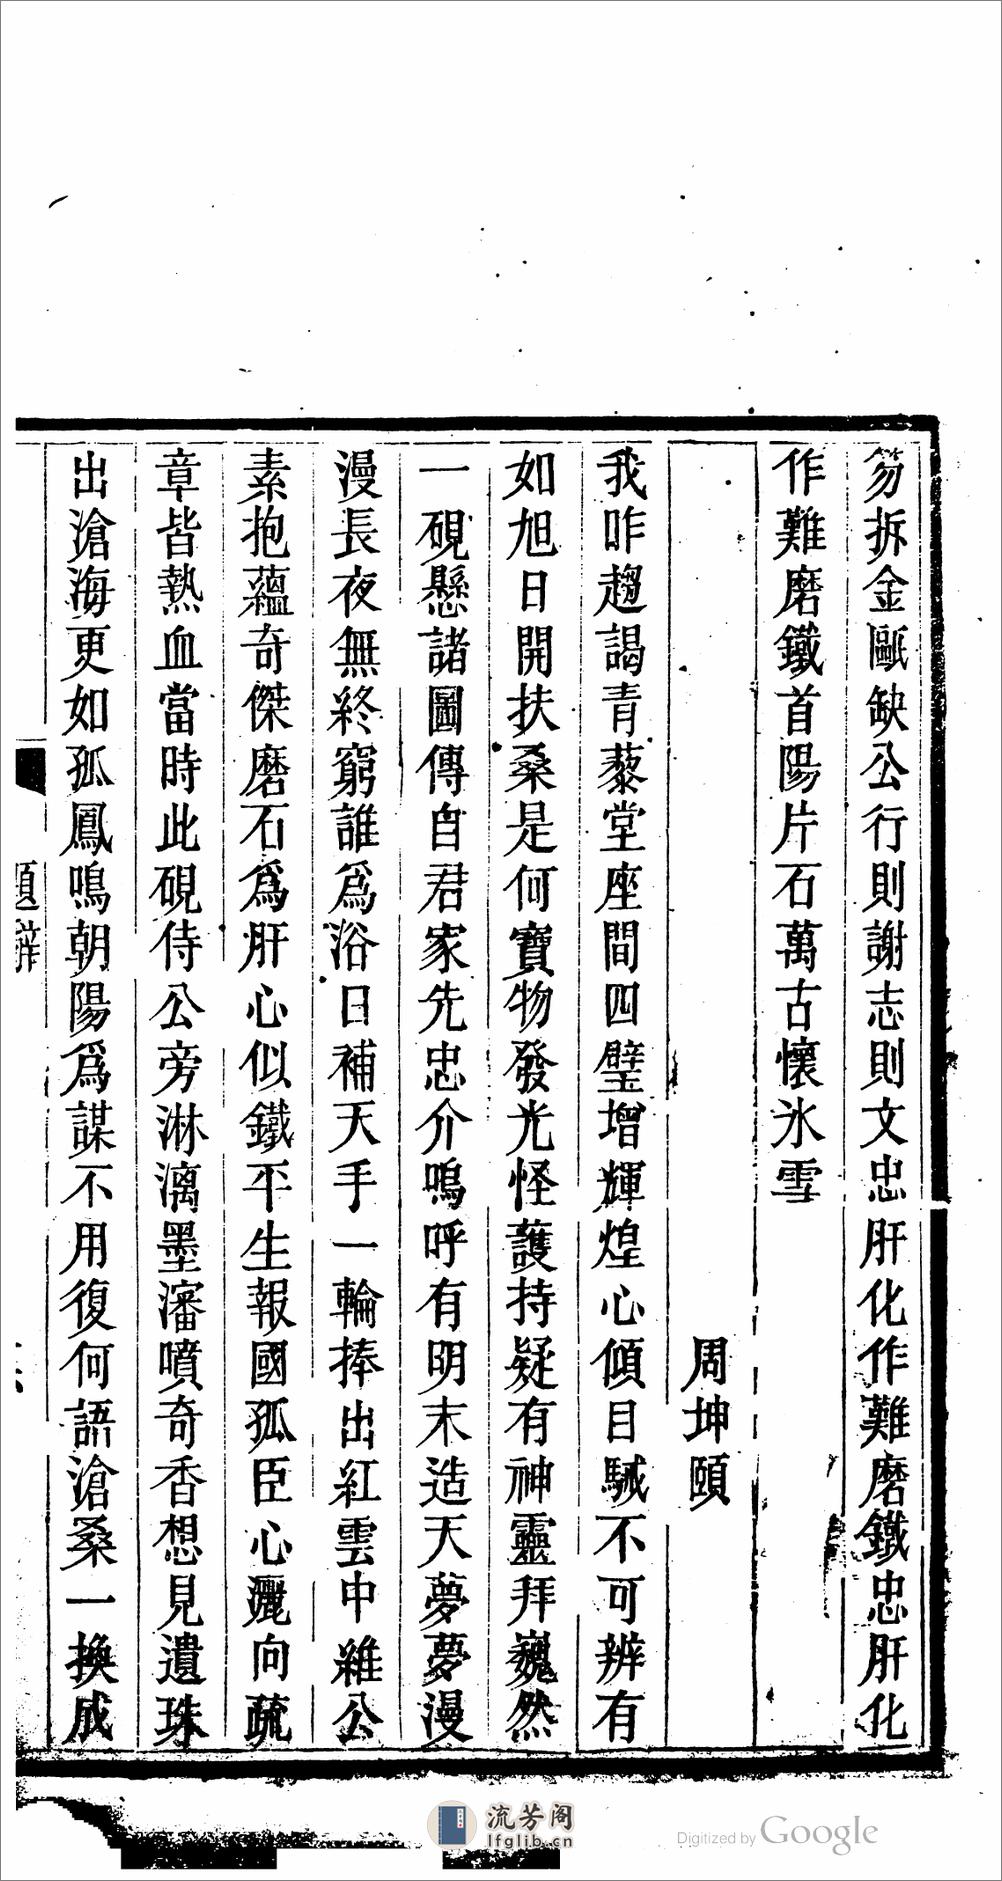 笏拆金甌缺公行則謝志則文忠肝化作難磨鐵忠肝化
作難磨鐵首陽片石萬古懷氷雪
周坤頤
我咋趨謁青藜堂座間四壁增輝煌心傾目駴不可辨有
如旭日開扶桑是何寶物發光怪護持疑有神靈拜巍然
一硯懸諸圖傳自君家先忠介嗚呼有明末造天夢夢漫
漫長夜無終窮誰爲浴日補天手一輪捧出紅雲中維公
素抱蘊奇傑磨石爲肝心似鐵平生報國孤臣心灑向疏
章皆熱血當時此硯侍公旁淋漓墨瀋噴奇香想見遺珠
出滄海更如孤鳳鳴朝陽爲謀不用復何語滄桑一換成
題辭
流芳阁
lfglib.cn
Digitized by Google